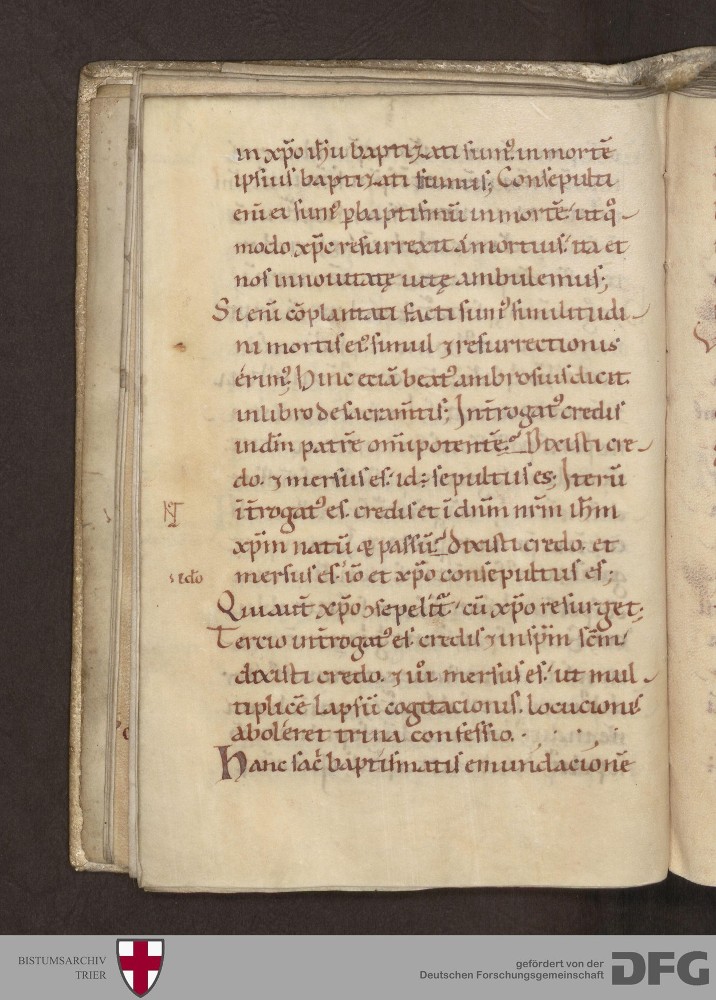 in xp̄o ih̄u baptizati sum᷒. in mortē
ipsius baptizati sumus; Consepulti
eni̅ ei sum᷒ ꝑ baptismū in mortē. ut qͦ-
modo xp̄c resurrexit á mortuis. ita et
nos in nouitatę uitę ambulemus;
Si eni̅ cōplantati facti sum᷒ similitudi-
ni mortis ei᷒. simul ⁊ resurrectionis
érim᷒. Hinc eciā beat᷒ ambrosius dicit.
in libro de sacram̄tis; Int̄rogat᷒ credis
in dm̄ patrē om̄ipotentē? Dixisti cre-
do. ⁊ mersus es. id ÷ sepultus es; Iterū
īt̄rogat᷒ es. credis et ī dn̄m nr̄m ih̄m
xp̄m natū ę passū? dixisti credo. et
mersus es. iō et xp̄o consepultus es;
ideo
Qui aut̄ xp̄o ↄsepelit᷒. cū xp̄o resurget;
Tercio int̄rogat᷒ es. credis ⁊ in sp̄m sc̄m.
dixisti credo. ⁊ iii mersus es. ut mul-
tiplicē lapsū cogitacionis. locucionis
aboleret trina confessio.
Hanc sac̄ baptismatis emundacionē
BISTUMSARCHIV
TRIER
gefördert von der
Deutschen Forschungsgemeinschaft
DFG